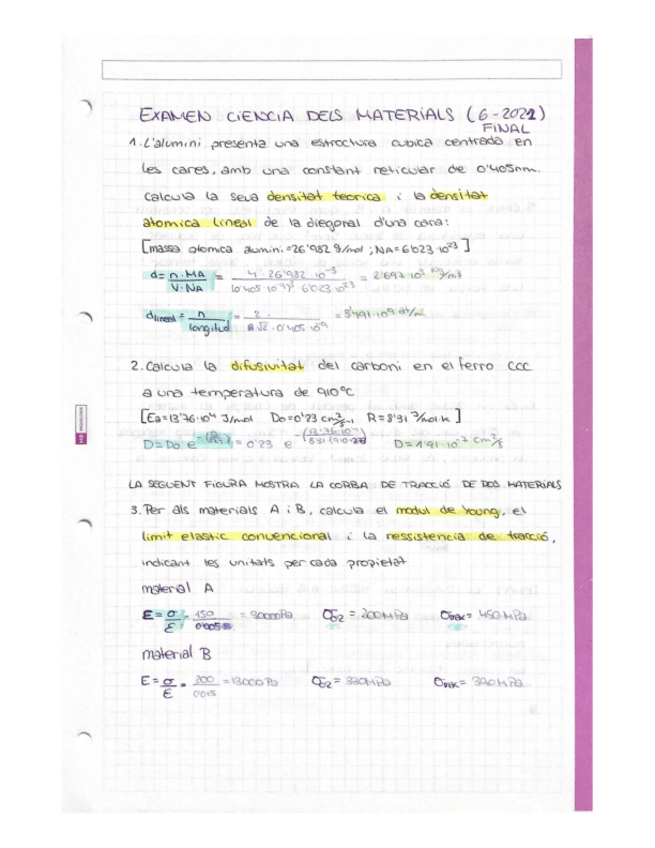 EXAMEN CIENCIA DELS MATERIALS (6-2021)
FINAL
1. L'alumini presenta una estructura cubica centrada en
les cares, amb una constant reticular de 0'405nm.
Calcula la seva densitat teorica i la densitat
atomica lineal de la diagonal d'una cara:
[massa atomica alumini = 26'982 g/mol ; NA = 6'023·10²³]
d = n·MA / V·NA = 4·26'982·10⁻³ / (0'405·10⁻⁹)³·6'023·10²³ = 2'697·10³ kg/m³
dlineal = n / longitud = 2 / √2·0'405·10⁻⁹ = 3'491·10⁹ at/m
2. Calcula la difusivitat del carboni en el ferro CCC
a una temperatura de 910ºC
[Ea = 13'76·10⁴ J/mol D0 = 0'23 cm²/s R = 8'31 J/mol·K]
D = D0 e = 0'23 e D = 1'91·10⁻⁷ cm²/s
LA SEGUENT FIGURA MOSTRA LA CORBA DE TRACCIÓ DE DOS MATERIALS
3. Per als materials A i B, calcula el modul de Young, el
limit elastic convencional i la ressistencia de tracció,
indicant les unitats per cada propietat
material A
E = σ/ε = 150 / = σ0'2 = 200MPa σmax = 450 MPa
material B
E = σ/ε = 200 / 0'015 = 13000 Pa σ0'2 = 330MPa σmax = 390 MPa